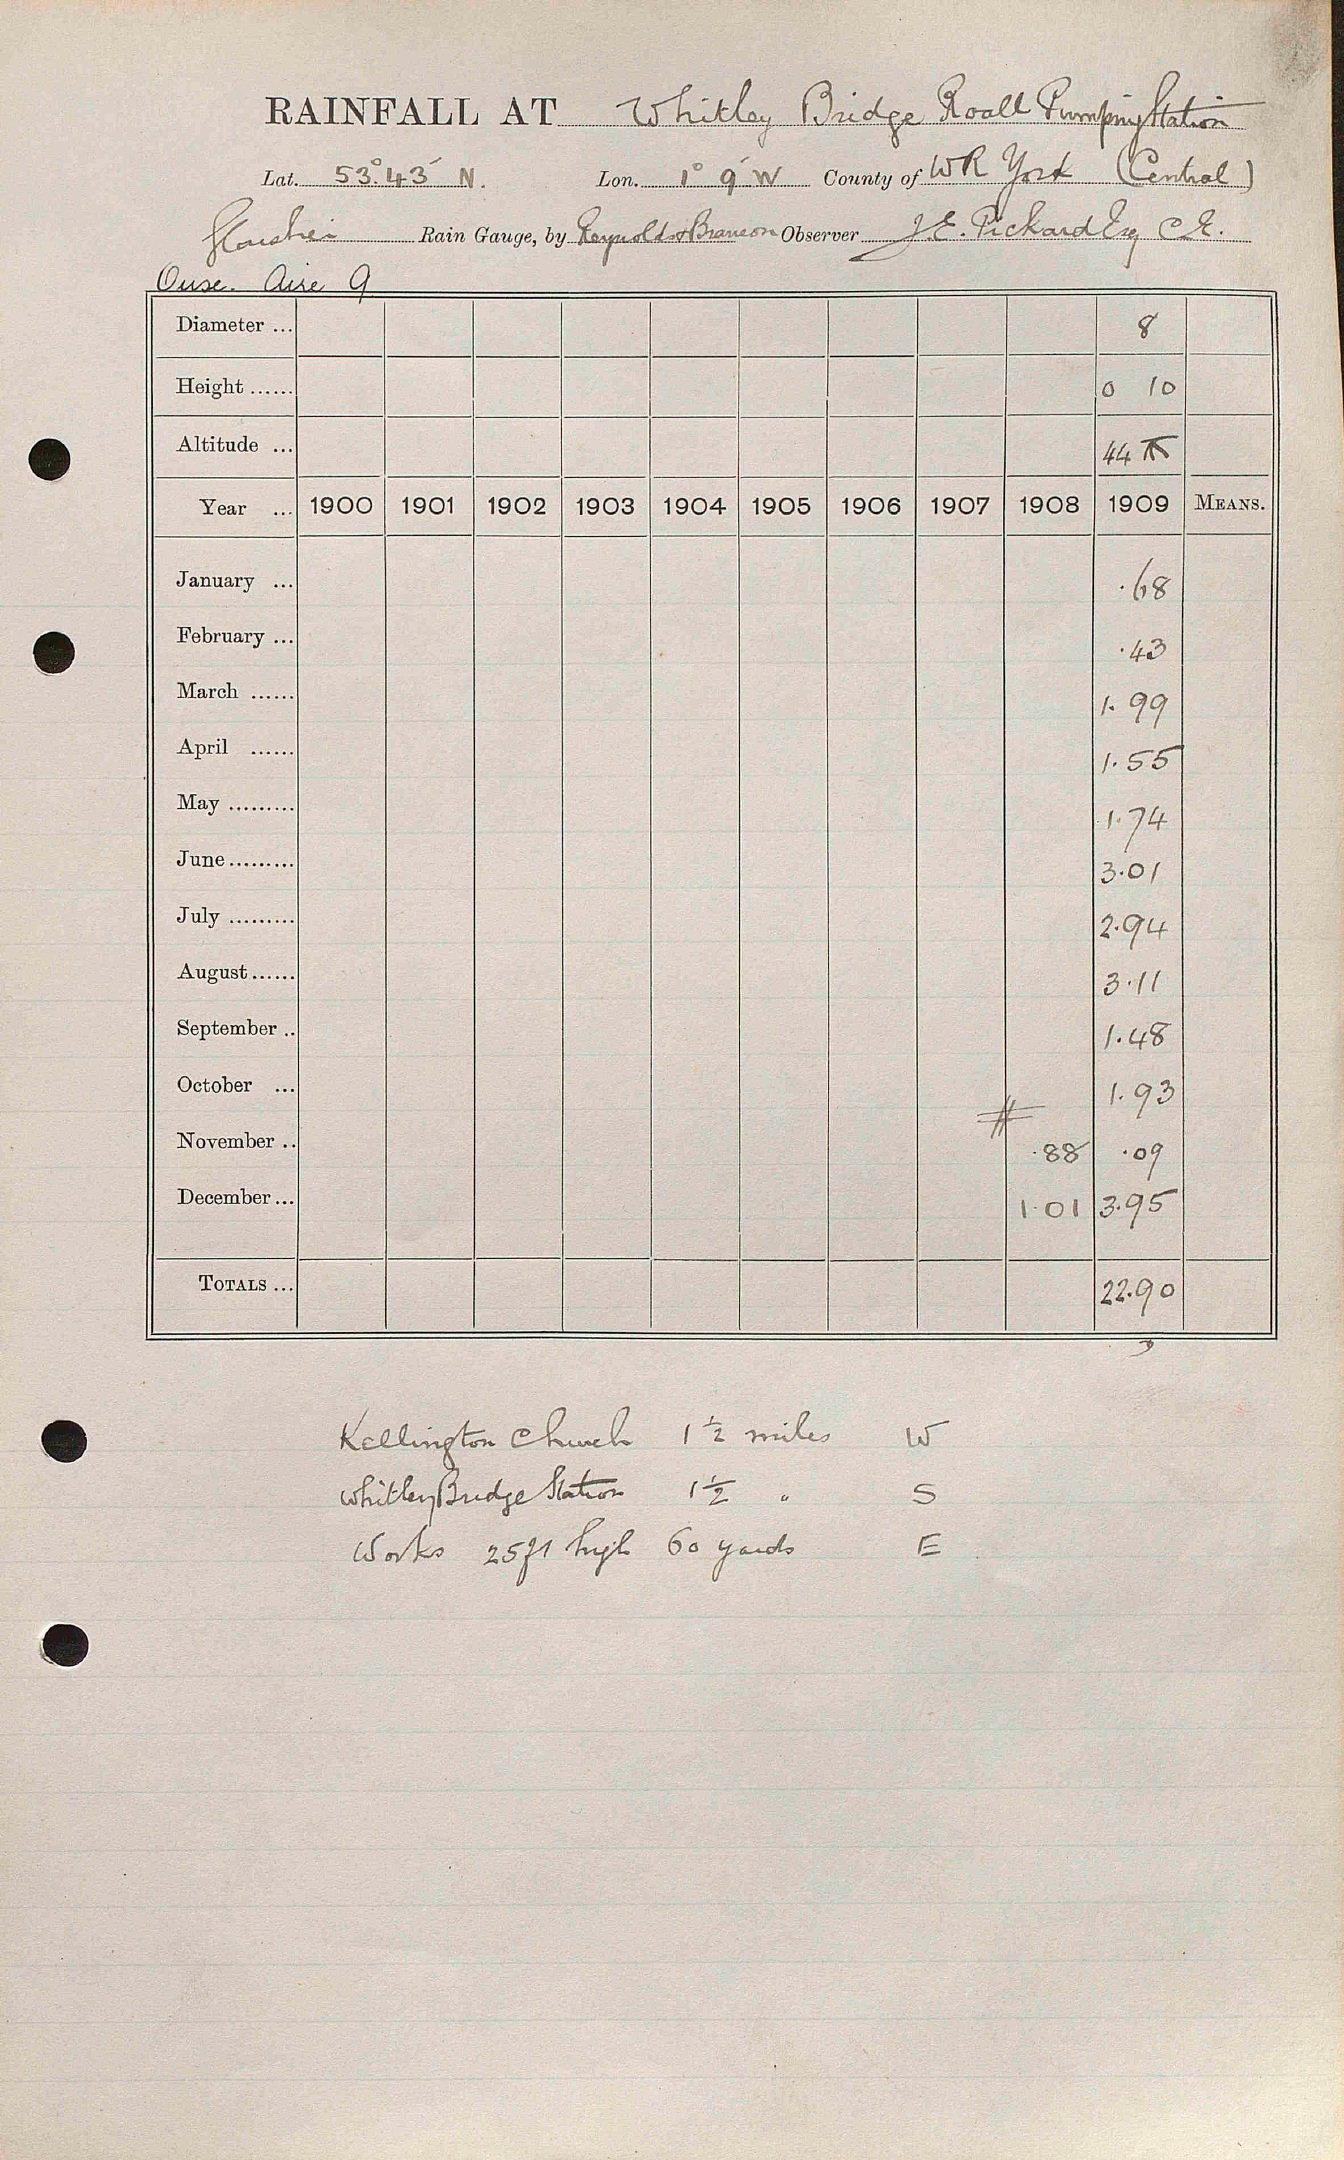 RAINFALL AT Whitley Bridge Roall Pumping Station
Lat. 53° 43' N. Lon. 1° 9' W County of WR York (Central)
Rain Gauge, by Reynolds & Branson Observer J. E. Pickard Esq C.E.
Ouse. Aire 9
Diameter ... 8
Height ...... 0 10
Altitude ... 44
Year ... 1900 1901 1902 1903 1904 1905 1906 1907 1908 1909 MEANS.
January ... .68
February ... .43
March ...... 1.99
April ...... 1.55
May ......... 1.74
June ......... 3.01
July ......... 2.94
August ...... 3.11
September .. 1.48
October ... 1.93
November .. .88 .09
December ... 1.01 3.95
TOTALS ... 22.90
Kellington Church 1½ miles W
Whitley Bridge Station 1½ " S
Works 25ft high 60 yards E